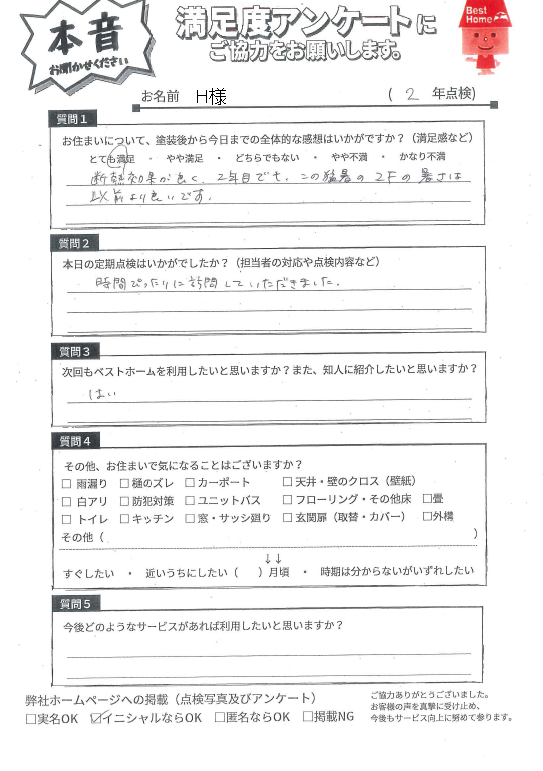 本音
お聞かせください
満足度アンケートに
ご協力をお願いします。
Best
Home
お名前 H様 ( 2 年点検)
質問1
お住まいについて、塗装後から今日までの全体的な感想はいかがですか?(満足感など)
とても満足 ・ やや満足 ・ どちらでもない ・ やや不満 ・ かなり不満
断熱効果が良く、2年目でも、この猛暑の2Fの暑さは
以前より良いです。
質問2
本日の定期点検はいかがでしたか?(担当者の対応や点検内容など)
時間ぴったりに訪問していただきました。
質問3
次回もベストホームを利用したいと思いますか?また、知人に紹介したいと思いますか?
はい
質問4
その他、お住まいで気になることはございますか?
□ 雨漏り □ 樋のズレ □ カーポート □ 天井・壁のクロス(壁紙)
□ 白アリ □ 防犯対策 □ ユニットバス □ フローリング・その他床 □畳
□ トイレ □ キッチン □ 窓・サッシ廻り □ 玄関扉(取替・カバー) □外構
その他( )
↓↓
すぐしたい ・ 近いうちにしたい( )月頃 ・ 時期は分からないがいずれしたい
質問5
今後どのようなサービスがあれば利用したいと思いますか?
弊社ホームページへの掲載(点検写真及びアンケート)
□実名OK ☑イニシャルならOK □匿名ならOK □掲載NG
ご協力ありがとうございました。
お客様の声を真摯に受け止め、
今後もサービス向上に努めて参ります。